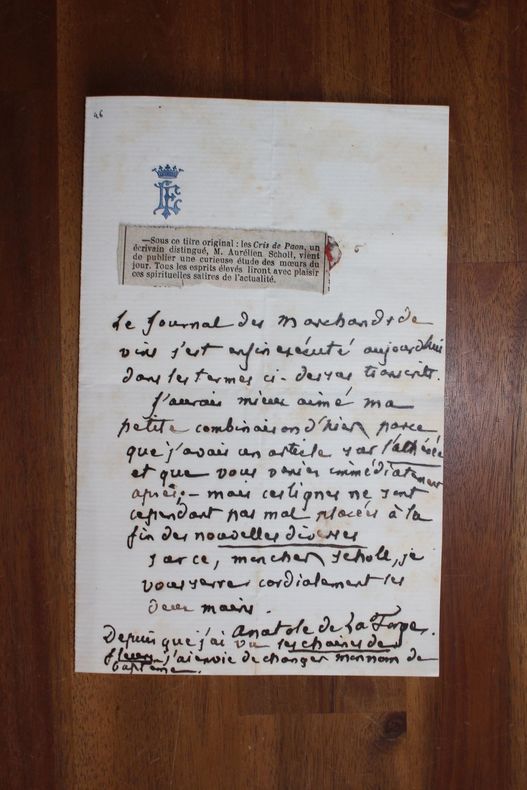 46
—Sous ce titre original : les Cris de Paon, un
écrivain distingué, M. Aurélien Scholl, vient
de publier une curieuse étude des mœurs du
jour. Tous les esprits élevés liront avec plaisir
ces spirituelles satires de l'actualité.
Le Journal des Marchands de
vins s'est enfin exécuté aujourd'hui
dans les termes ci-dessus transcrits.
J'aurais mieux aimé ma
petite combinaison d'hier parce
que j'avais un article sur l'athénée
et que vous veniez immédiatement
après, – mais ces lignes ne sont
cependant pas mal placées à la
fin des nouvelles diverses
sur ce, mon cher Scholl, je
vous serre cordialement les
deux mains.
Anatole de La Forge.
Depuis que j'ai vu les chaines de
fleurs j'ai envie de changer mon nom de
baptême.